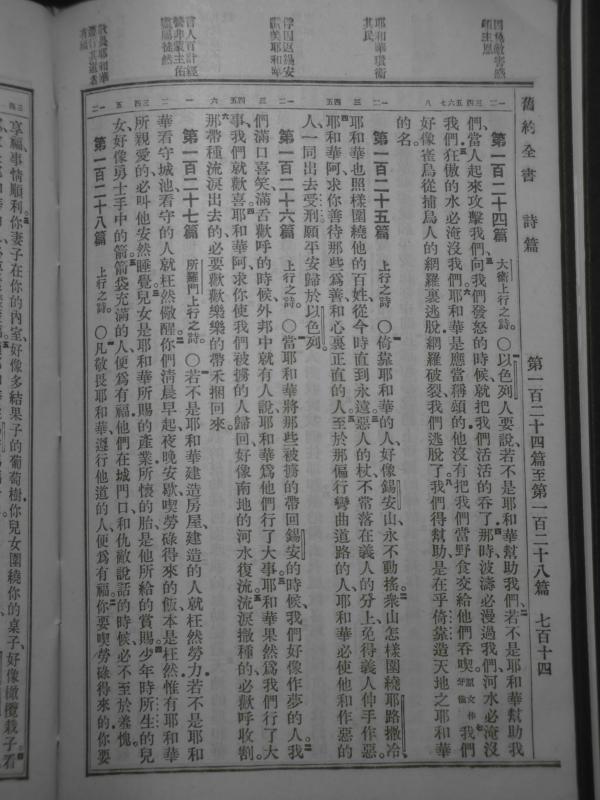 舊約全書　詩篇　第一百二十四篇至第一百二十八篇　七百十四
第一百二十四篇　大衛上行之詩。○以色列人要說若不是耶和華幫助我們、若不是耶和華幫助我
們、當人起來攻擊我們、向我們發怒的時候、就把我們活活的吞了、那時波濤必漫過我們、河水必淹沒
我們、狂傲的水必淹沒我們。耶和華是應當稱頌的、他沒有把我們當野食交給他們吞喫。我們
好像雀鳥從捕鳥人的網羅裏逃脫、網羅破裂、我們逃脫了。我們得幫助、是在乎倚靠造天地之耶和華
的名。
第一百二十五篇　上行之詩。○倚靠耶和華的人、好像錫安山、永不動搖。衆山怎樣圍繞耶路撒冷、
耶和華也照樣圍繞他的百姓、從今時直到永遠。惡人的杖不常落在義人的分上、免得義人伸手作惡。
耶和華阿、求你善待那些爲善和心裏正直的人。至於那偏行彎曲道路的人、耶和華必使他和作惡的
人一同出去受刑。願平安歸於以色列。
第一百二十六篇　上行之詩。○當耶和華將那些被擄的帶回錫安的時候、我們好像作夢的人。我
們滿口喜笑、滿舌歡呼的時候、外邦中就有人說、耶和華爲他們行了大事。耶和華果然爲我們行了大
事、我們就歡喜。耶和華阿、求你使我們被擄的人歸回、好像南地的河水復流。流淚撒種的、必歡呼收割。
那帶種流淚出去的、必要歡歡樂樂的帶禾捆回來。
第一百二十七篇　所羅門上行之詩。○若不是耶和華建造房屋、建造的人就枉然勞力、若不是耶和
華看守城池、看守的人就枉然儆醒。你們清晨早起、夜晚安歇、喫勞碌得來的飯、本是枉然、惟有耶和華
所親愛的、必叫他安然睡覺。兒女是耶和華所賜的產業、所懷的胎、是他所給的賞賜。少年時所生的兒
女、好像勇士手中的箭。箭袋充滿的人、便爲有福、他們在城門口和仇敵說話的時候、必不至於羞愧。
第一百二十八篇　上行之詩。○凡敬畏耶和華、遵行他道的人、便爲有福。你要喫勞碌得來的、你要
享福、事情順利。你妻子在你的內室、好像多結果子的葡萄樹、你兒女圍繞你的桌子、好像橄欖栽子。看